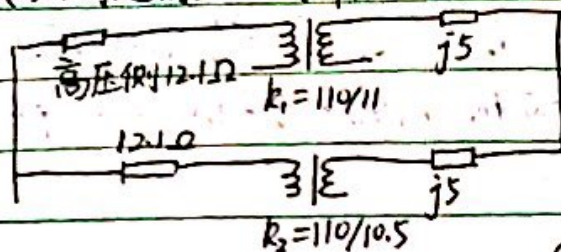 高压侧12.1Ω
j5
k₁=110/11
12.1Ω
j5
k₂=110/10.5